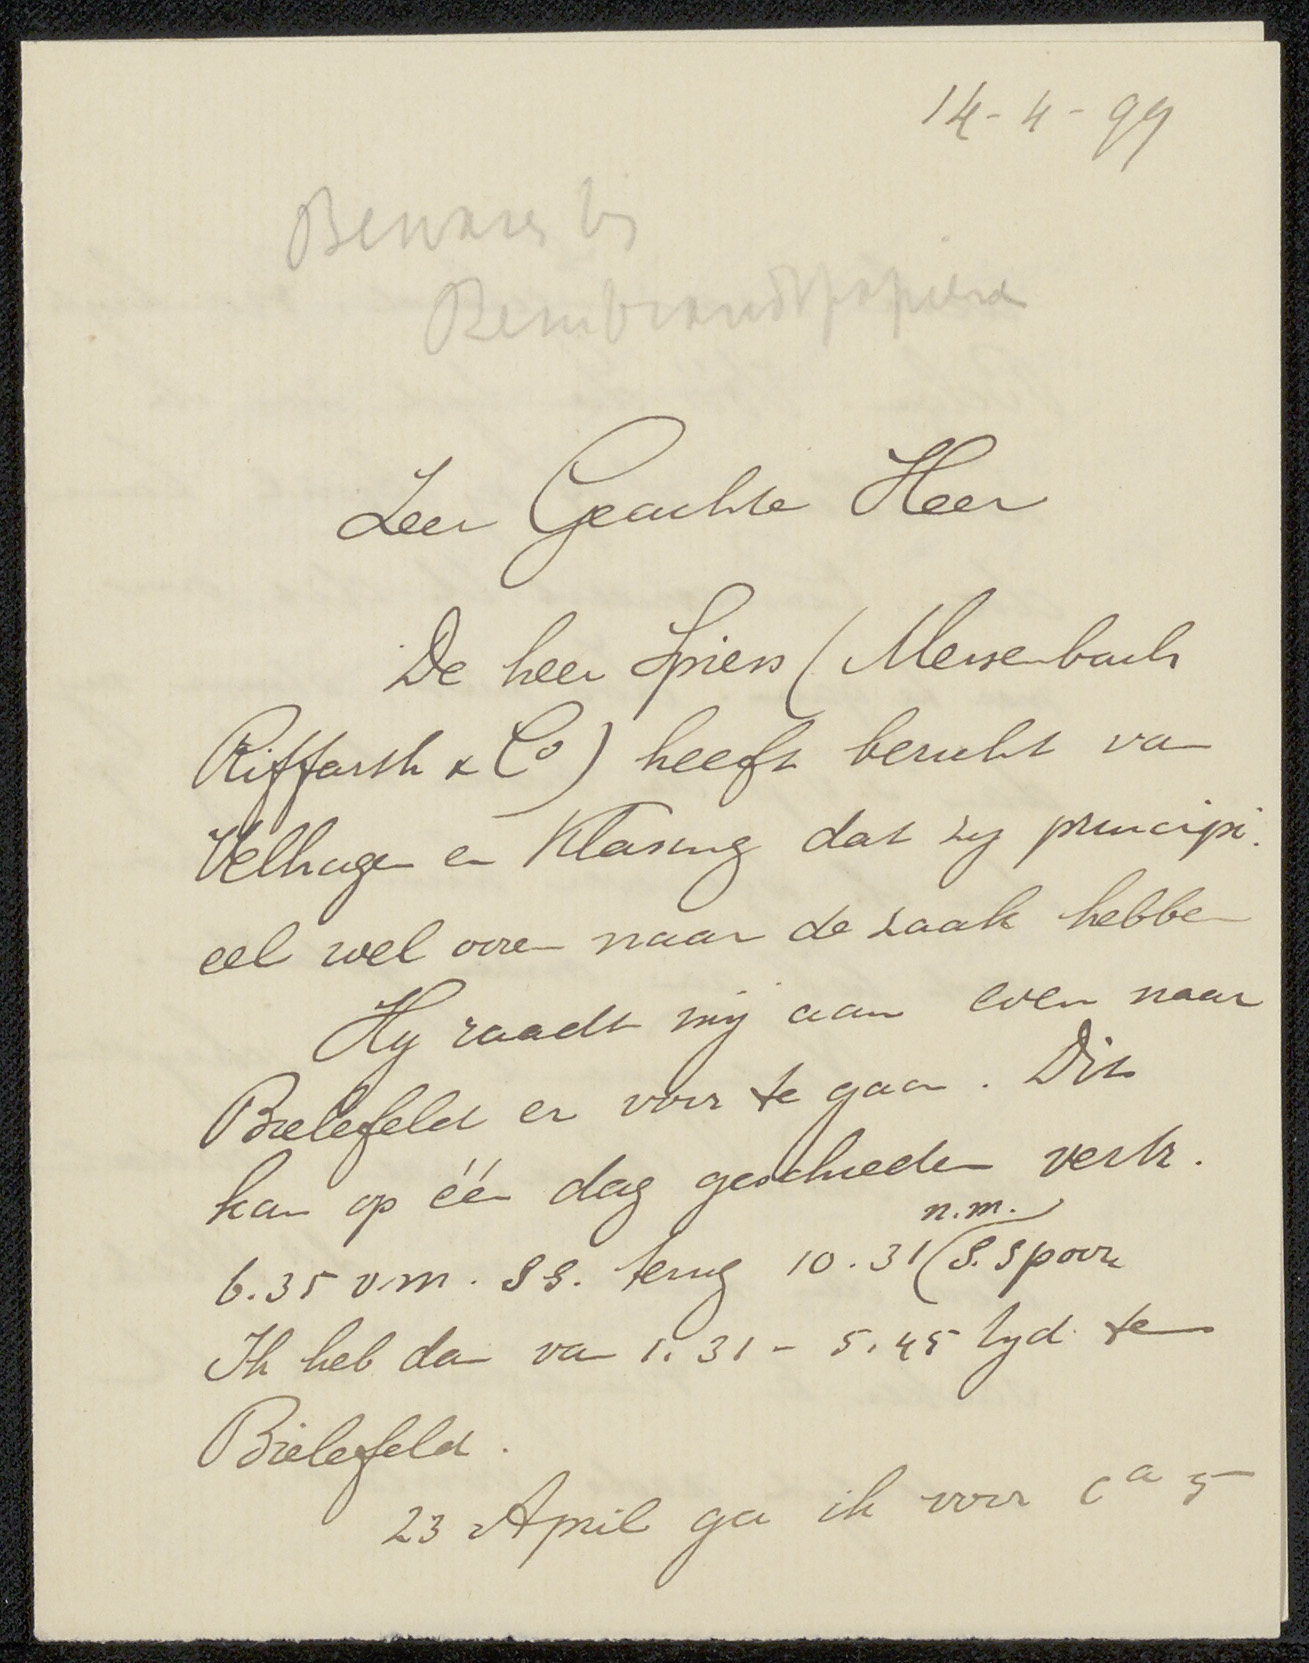 14-4-99
Bewaren bij
Rembrandtpapieren
Zeer Geachte Heer
De heer Spiess (Meisenbach
Riffarth & Co) heeft bericht van
Velhagen en Klasing dat zij principi-
eel wel ooren naar de zaak hebben
Hij raadt mij aan even naar
Bielefeld er voor te gaan. Dit
kan op één dag geschieden vertr.
n.m.
6.35 v.m. SS. terug 10.31 (S.Spoor
Ik heb dan van 1.31 - 5.45 tijd te
Bielefeld.
23 April ga ik voor ca 5